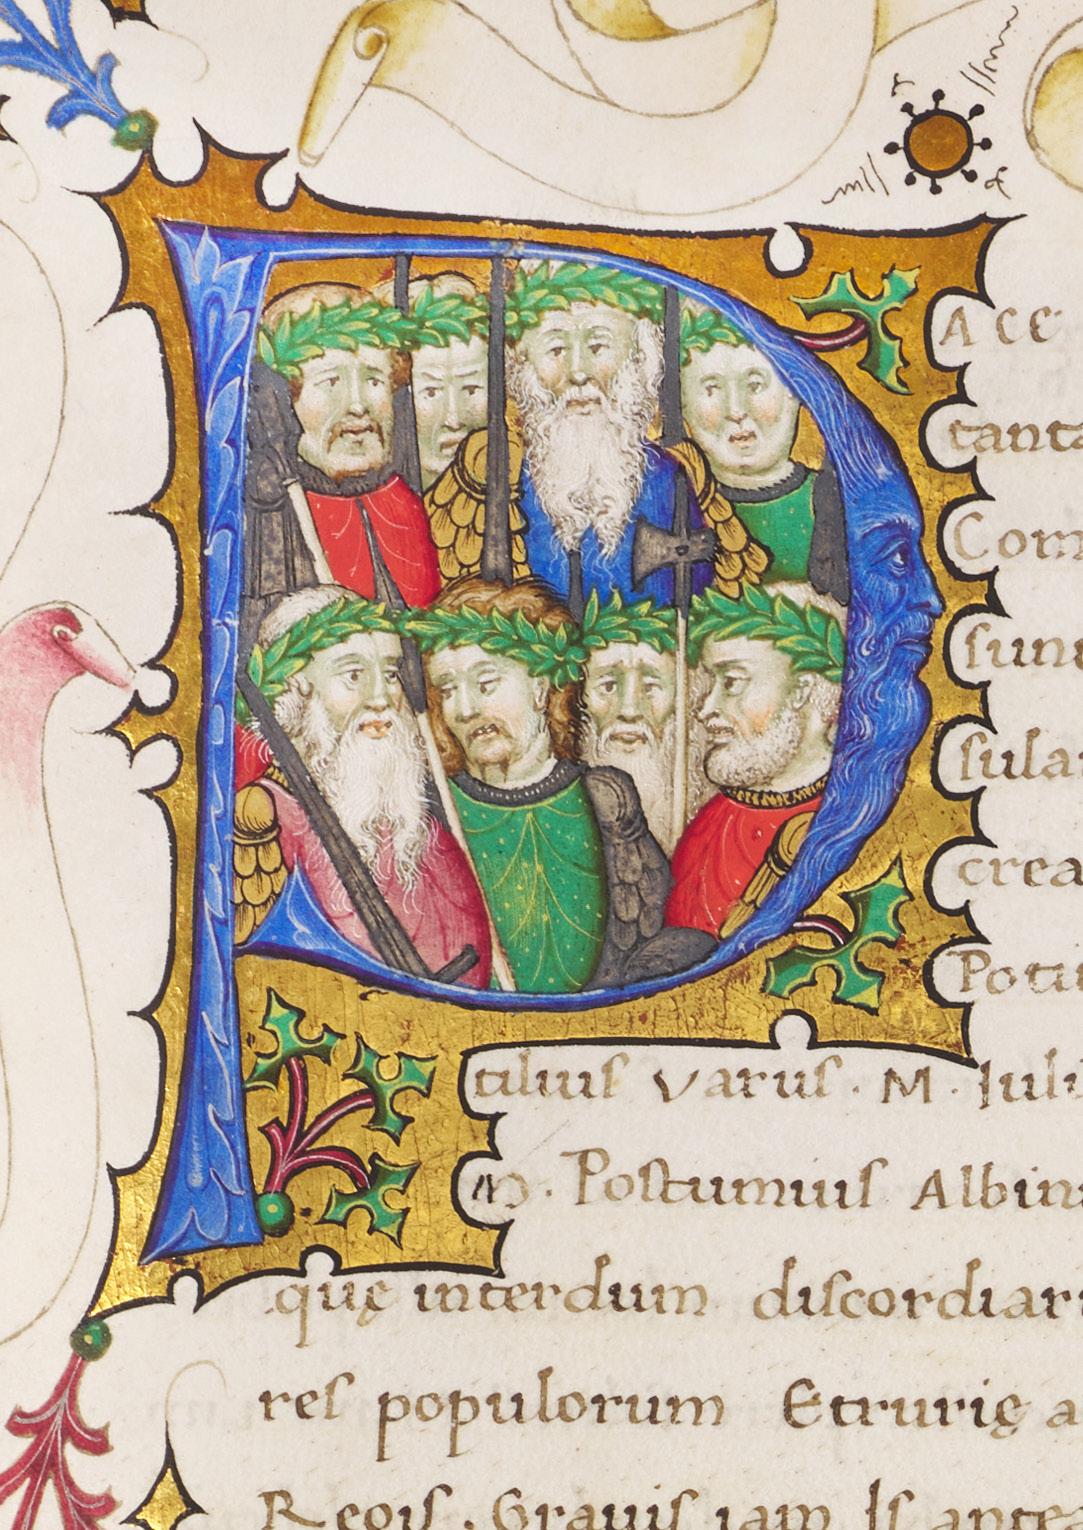 P
ACE
tanta
Com
sunt
sula
crea
Potu
tiliuſ Varuſ . M . Iuli
M . Poſtumiuſ Albin
quę interdum diſcordiar
reſ populorum Etrurię a
Regiſ . Grauiſ iam Iſ antea